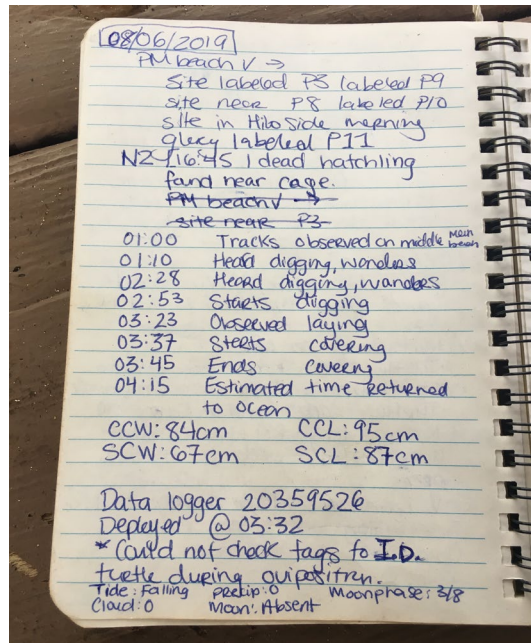 08/06/2019
PM beach ✓ →
Site labeled P3 labeled P9
site near P8 labeled P10
site in Hilo Side morning
glory labeled P11
N2 - 16:45 1 dead hatchling
fand near cage.
PM beach ✓ →
site near P3
01:00 Tracks observed on middle Main beach
01:10 Heard digging, wanders
02:28 Heard digging, wanders
02:53 Starts digging
03:23 Observed laying
03:37 Sterts covering
03:45 Ends coveeng
04:15 Estimated time returned
to ocean
CCW: 84cm CCL: 95cm
SCW: 67cm SCL: 87cm
Data logger 20359526
Deployed @ 03:32
* Could not check tags to I.D.
turtle during ovipositren.
Tide: Falling precip: 0 Moonphase: 3/8
Cloud: 0 Moon: Absent